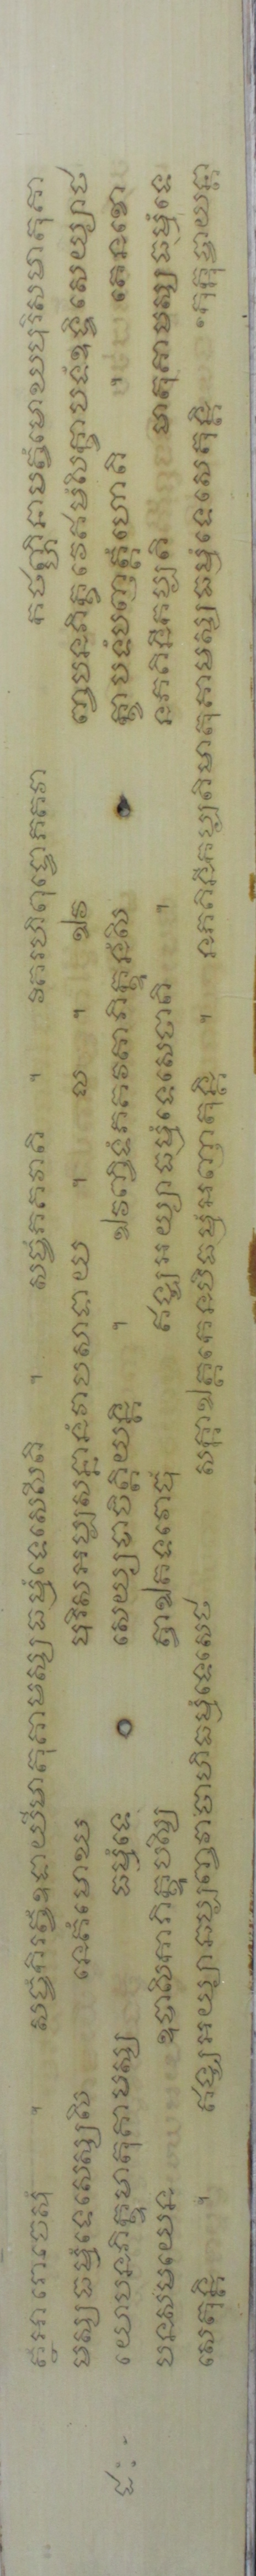 ត្ថំអារោចេសុំ ។ សច្ចំកិរត្វំឧទាយីមាតុគាមស្សធម្មំទេសេសីតិ ។ សច្ចំភគវាតិ ។ វិគរហិពុទ្ធោភគវា កថញ្ហិនាមត្វំមោឃបុរិសមាតុគា
មស្សធម្មំទេសេស្សសិ នេតំមោឃ បុរិសអប្បសន្នានំវាបសាទាយ ។ ល ។ ឯវ ញ្ចបនភិក្ខវេឥមំសិក្ខាបទំឧទ្ទិសេយ្យាថ
យោបនភិក្ខុមាតុគាមស្ស ធម្មំទេ សេយ្យបាចិត្តិយន្តិ ។ ឯវញ្ចិទំភគវតាភិក្ខូនំសិ ក្ខាបទំបញ្ញត្តំហោតិ ។ តេនខោ
បនសមយេន ឧបាសិកាភិក្ខូបស្សិ ត្វាឯតទវោចុំ ឥង្ឃអយ្យាធម្មំទេសេថាតិ ។ នភគិនីកប្បតិ មាតុគាមស្សធម្មំទេ
សេតុន្តិ ។ ឥង្ឃអយ្យាឆប្បញ្ចវាចាហិធម្មំទេសេថ សក្កាឯត្តកេនបិធម្មំអញ្ញាតុន្តិ ។ នភគិនីកប្បតិមាតុគាមស្សធម្មំទេសេតុន្តិ កុក្កុច្ចាយន្តា